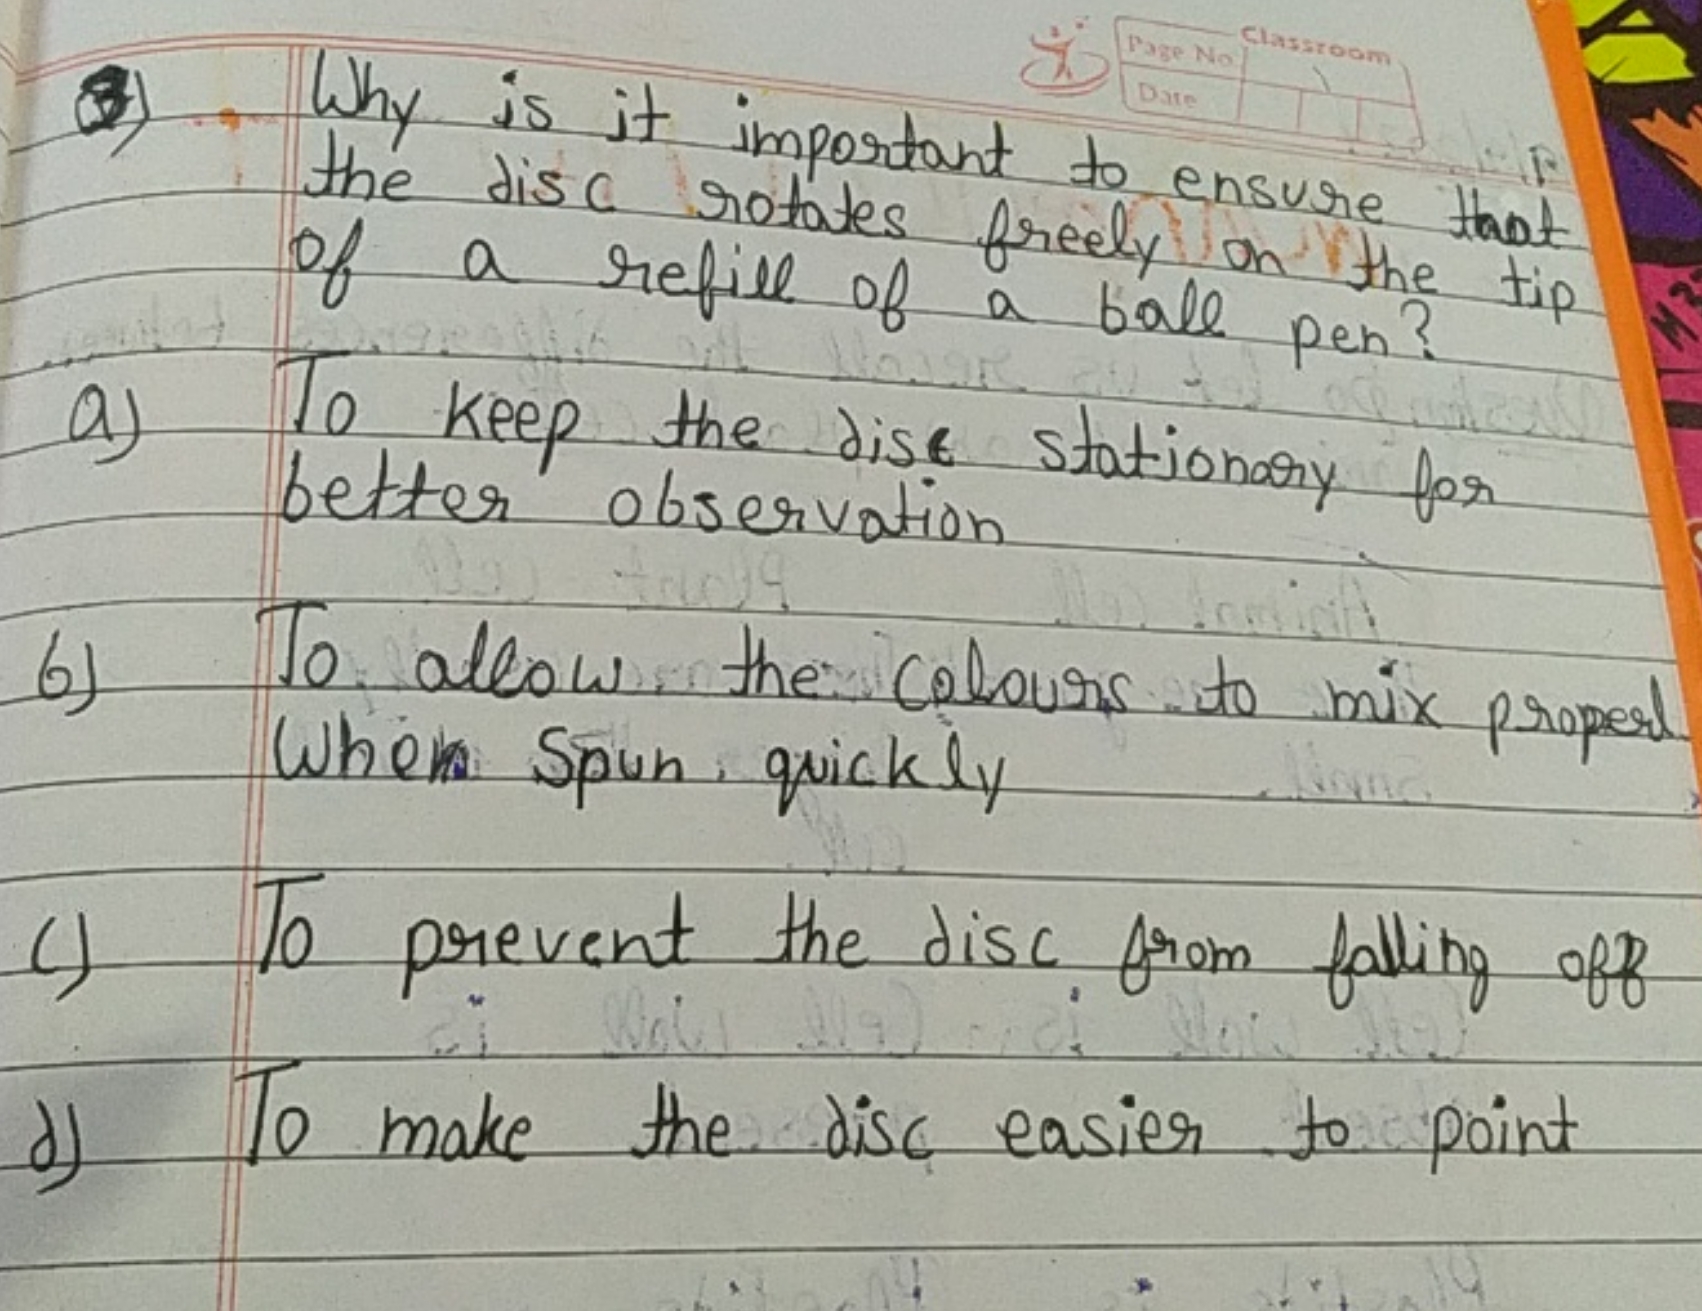 Classroom
Page No
Date
3) Why is it important to ensure that
the disc rotates freely on the tip
of a refill of a ball pen?
a) To keep the disc stationary for
better observation
b) To allow the colours to mix properl
When spun quickly
c) To prevent the disc from falling off
d) To make the disc easier to point